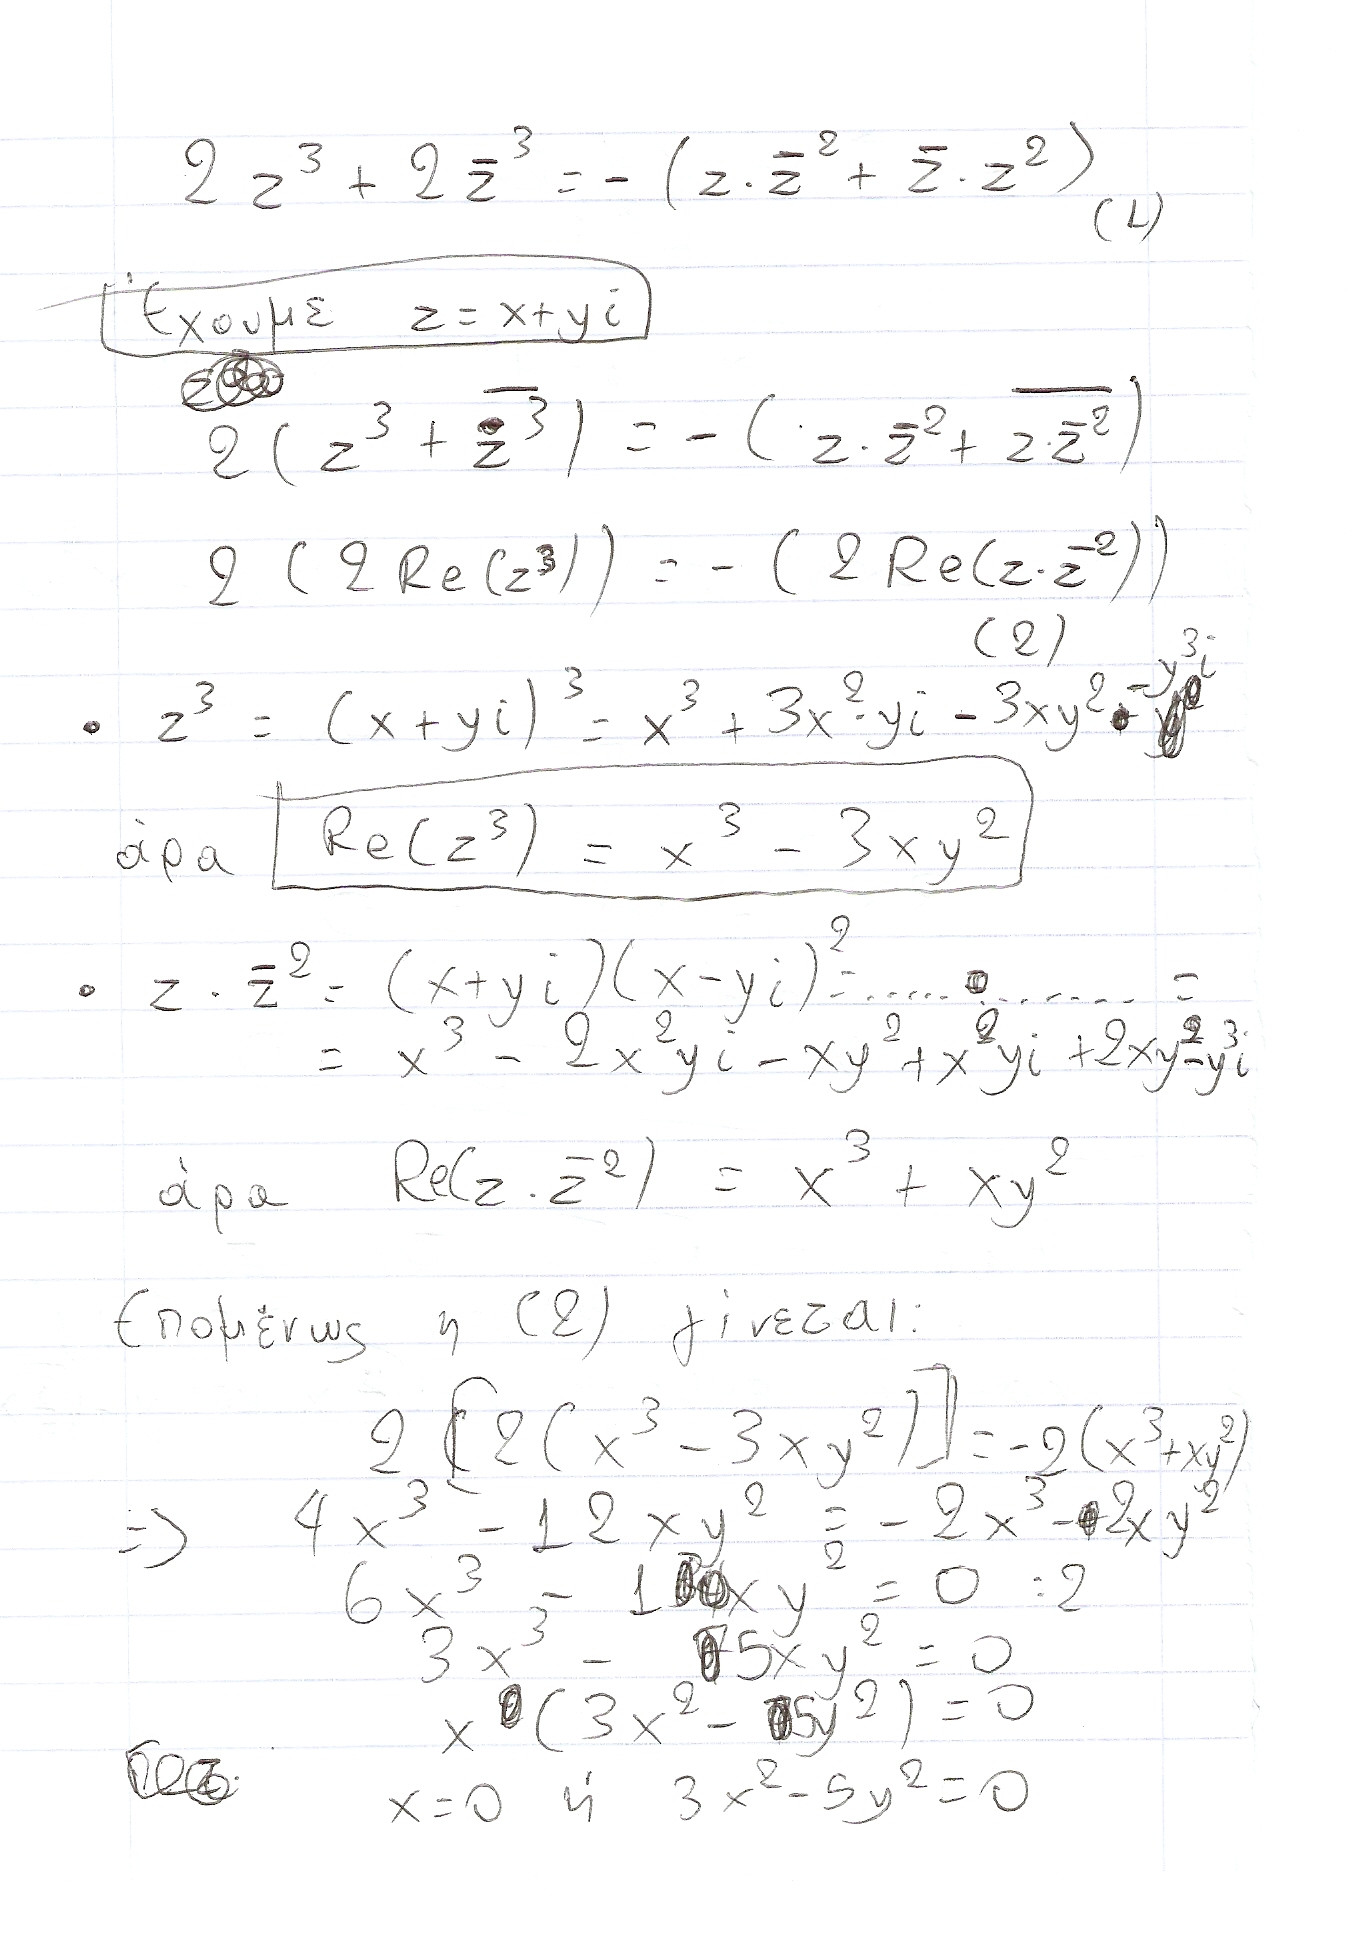 2 z³ + 2 z̄³ = - (z·z̄² + z̄·z²)
(1)
Έχουμε z = x+yi
2 ( z³ + z̄³ ) = - ( z·z̄² + \overline{z·z̄²} )
2 ( 2 Re(z³)) = - ( 2 Re(z·z̄²))
(2)
• z³ = (x+yi)³ = x³ + 3x²·yi - 3xy² - y³i
άρα Re(z³) = x³ - 3xy²
• z · z̄² = (x+yi)(x-yi)² = ............... =
= x³ - 2x²yi - xy² + x²yi + 2xy² - y³i
άρα Re(z·z̄²) = x³ + xy²
Επομένως η (2) γίνεται:
2 [2(x³ - 3xy²)] = -2(x³+xy²)
=> 4x³ - 12xy² = - 2x³ - 2xy²
6x³ - 10xy² = 0 :2
3x³ - 5xy² = 0
x (3x² - 5y²) = 0
x=0 ή 3x²-5y²=0